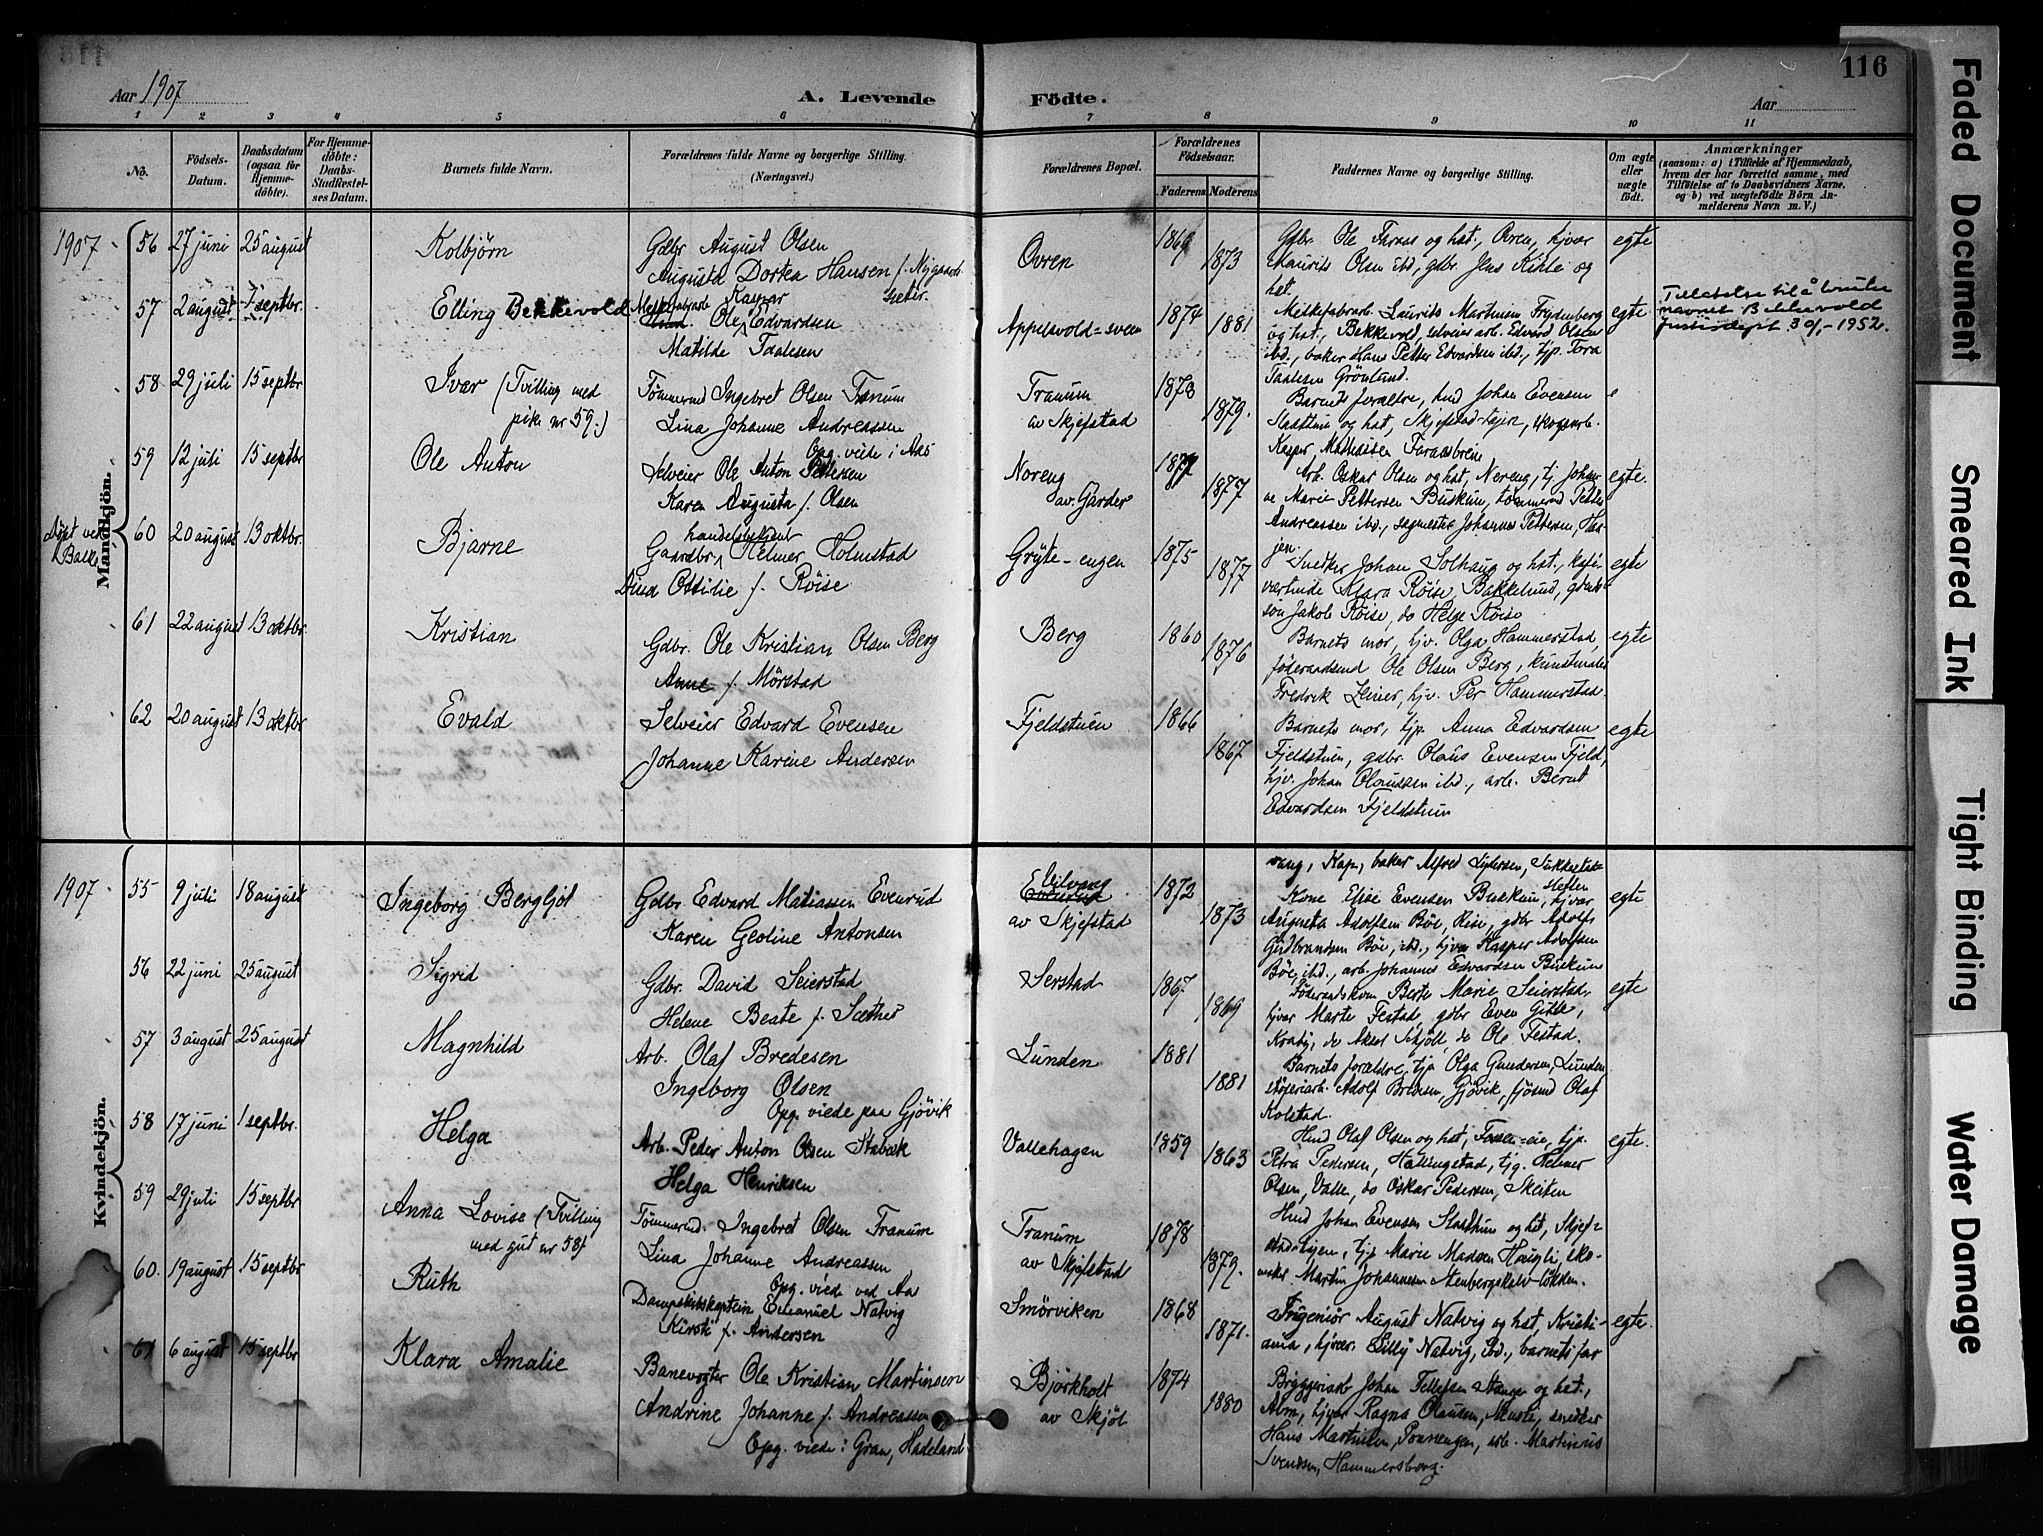 116
Aar 1907
A. Levende Födte.
Aar
1 2 3 4 5 6 7 8 9 10 11
No.
Födsels-Datum.
Daabsdatum (ogsaa for Hjemme-döbte).
For Hjemme-döbte: Daabs-Stadfæstel-ses Datum.
Barnets fulde Navn.
Forældrenes fulde Navne og borgerlige Stilling. (Næringsvei.)
Forældrenes Bopæl.
Forældrenes Födselsaar.
Faderens Moderens
Faddernes Navne og borgerlige Stilling.
Om ægte eller uægte födt.
Anmærkninger
(saasom: a) i Tilfælde af Hjemmedaab,
hvem der har forrettet samme, med
Tilföielse af to Daabsvidners Navne,
og b) ved uægtefödte Börn An-
melderens Navn m. V.)
Mandkjön.
1907 56 27 juni 25 august Kolbjörn
Gdbr. August Olsen
Augusta Dortea Hansen f. Nygaard
Ovren 1869 1873
Gdbr. Ole Faraas og hst., Ovren, hjvær
Maurits Olsen ibd., gdbr. Jens Kihle og
hst.
egte
57 2 august 7 septbr. Elling Bekkevold
Ole Kaspar Edvardsen
Matilde Taalesen
Appelsvold-sveen 1874 1881
Melkefabrarb. Laurits Martinsen Frydenberg
og hst., Bakkevold, selveier arb. Edvard Olsen
ibd., baker Hans Petter Edvardsen ibd., tjp. Tora
Taalesen Grönlund.
egte
Tillatelse til å bruke
navnet Bekkevold
Justisdept 30/- 1952.
58 29 juli 15 septbr. Ivar (Tvilling med
pike nr 59.)
Tömmermd Ingebret Olsen Tranum
Lina Johanne Andreassen
Opg. viede i Aas
Tranum
av Skjefstad 1878 1879.
Barnets forældre, hmd Johan Evensen
og hst, Skjefstad-tajen, skogsarb.
Kasper Mathisen Faraasbræine
59 12 juli 15 septbr Ole Anton
Selveier Ole Anton Pettersen
Karen Augusta f. Olsen
Noreng
av. Garder 1877 1877
Arb. Oskar Olsen og hst, Noreng, tj. Johan-
ne Marie Pettersen Buskum, tömmermd Petter
Andreassen ibd., sagmester Johannes Pettersen,
egte.
Döpt ved Balke 60 20 august 13 oktbr. Bjarne
handelsbetjent
Gaardbr. Helmer Holmstad
Ottilie f. Röise
Gryte-engen 1875 1877
Snedker Johan Solhaug og hst., kafe-
værtinde Klara Röise, Bakkelund, gdmk
sön Jakob Röise, do Helge Röise
egte
61 22 august 13 oktbr. Kristian
Gdbr. Ole Kristian Olsen Berg
Anne f. Mörstad
Berg 1860 1876
Barnets mor, hjv. Olga Hammerstad,
föderaadsmd Ole Olsen Berg, kunstmaler
Fredrik, hjv. Per Hammerstad.
egte
62 20 august 13 oktbr Evald
Selveier Edvard Evensen
Johanne Karine Andersen
Fjeldstuen 1866 1867
Barnets mor, tjp. Anna Edvardsen
Fjeldstuen, gdbr. Olaus Evensen Fjeld,
hjv. Johan Olaussen ibd., arb. Bernt
Edvardsen Fjeldstuen
egte
Kvindekjön.
1907 55 9 juli 18 august Ingeborg Bergljot
Gdbr. Edvard Matiassen Evenrud
Karen Geoline Antonsen
av Skjefstad 1872 1873
vang, Kap, baker Alfred
Kone Elise Evensen Buskum, hjvær
Augusta Adolfsen Böe, Rise, gdbr Adolf
Gudbrandsen Böe, ibd., hjvær Kasper Adolfsen
Böe, ibd., arb. Johannes Edvardsen Buskum
egte
56 22 juni 25 august Sigrid
Gdbr. David Seierstad
Helene Beate f. Sæther
Serstad 1867 1869
Föderaadskone Berte Marie Seierstad,
hjvær Marte Festad, gdbr Even
Kraby, do Aksel Skjöll, do Ole Festad.
egte
57 3 august 25 august Magnhild
Arb. Olaf Bredesen
Ingeborg Olsen
Opg. viede paa Gjövik
Lunden 1881 1881
Barnets forældre, tjp Olga Gundersen, Lunden
støperiarb. Adolf Bredesen, Gjövik, fjösmd Olaf
Kolstad.
58 17 juni 1 septbr. Helga
Arb. Peder Anton Olsen Stabæk
Helga Henriksen
Vallehagen 1859 1863
Hmd Olaf Olsen og hst, Fossen-eie, tjp.
Petra Pedersen, Hallingstad, tjg. Helmer
Olsen, Valle, do Oskar Pedersen, Skeiten
egte.
59 29 juli 15 septbr Anna Lovise (Tvilling
med gut nr 58)
Tömmermd. Ingebret Olsen Tranum
Lina Johanne Andreassen
Opg. viede ved Aas
Tranum
av Skjefstad 1878 1879.
Hmd Johan Evensen og hst, Skjef-
stad-tjern, tjp Marie Madsen Haugli, sko-
maker Martin Johannesen Stenbergskalv-lökken.
60. 19 august 15 septbr Ruth
Dampskibskaptein Emanuel Natvig
Kirsti f. Andersen
Smörviken 1868 1871.
Ingeniör August Natvig og hst, Kristi-
ania, hjvær. Lilly Natvig, ibd., barnets far
egte.
61 6 august 15 septbr Klara Amalie
Banevogter Ole Kristian Martinsen
Andrine Johanne f. Andreassen
Opg. viede i Gran, Hadeland
Björkholt
av Skjöl 1874 1880
Bryggeriarb Johan Tellefsen Stange og hst.,
Alm, hjvær Ragna Olausen, Muste, snedker
Hans Martinsen, Sonnengen, arb. Martinius
Svendsen, Hammersborg.
Faded Document
Smeared Ink
Tight Binding
Water Damage